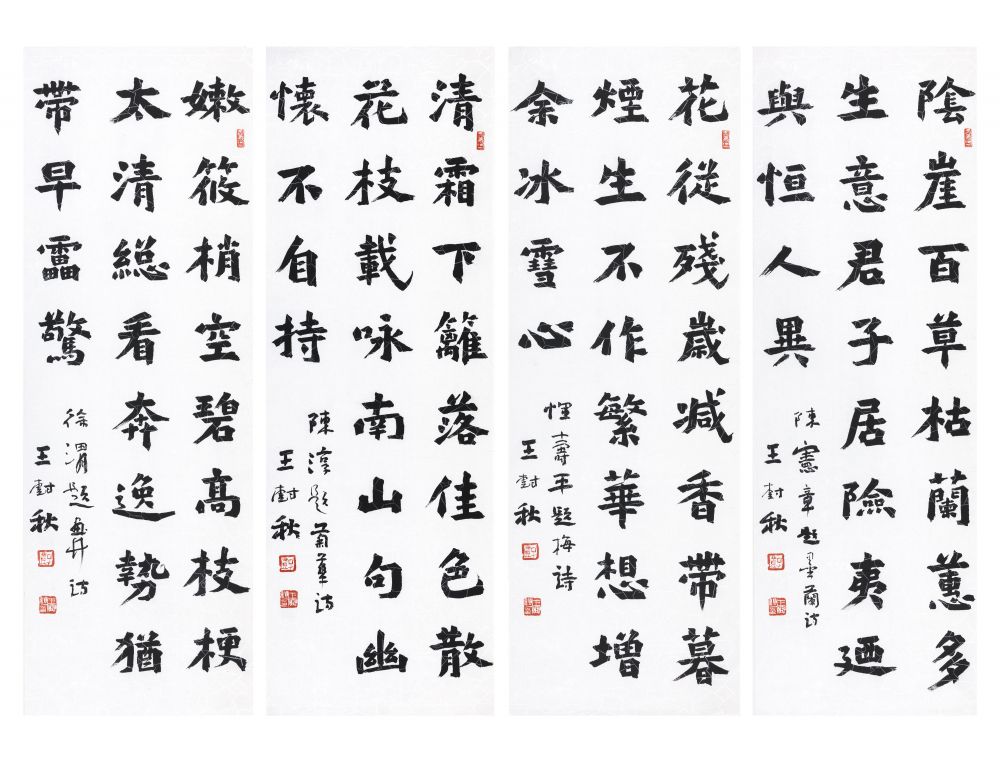 陰崖百草枯蘭蕙多
生意君子居險夷廼
與恒人異
陳憲章題墨蘭詩
王封秋
花從殘歲減香帶暮
煙生不作繁華想增
余冰雪心
惲壽平題梅詩
王封秋
清霜下籬落佳色散
花枝載咏南山句幽
懷不自持
陳淳題菊華詩
王封秋
嫩筱梢空碧高枝梗
太清緫看奔逸勢猶
帶早靁驚
徐渭題畫竹詩
王封秋